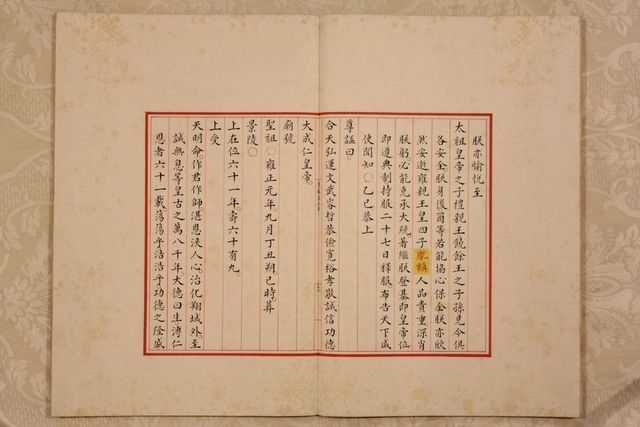 朕亦愉悅至
太祖皇帝之子禮親王饒餘王之子孫見今俱
各安全朕身後爾等若能協心保全朕亦欣
然安逝雍親王皇四子胤禛人品貴重深肖
朕躬必能克承大統著繼朕登基即皇帝位
即遵典制持服二十七日釋服布告天下咸
使聞知○乙巳恭上
尊諡曰
合天弘運文武睿哲恭儉寬裕孝敬誠信功德
大成仁皇帝
廟號
聖祖○雍正元年九月丁丑朔巳時葬
景陵○
上在位六十一年壽六十有九
上受
天明命作君作師湛恩浹人心治化翔域外至
誠無息等皇古之萬八千年大德曰生溥仁
恩者六十一載蕩蕩乎浩浩乎功德之隆盛